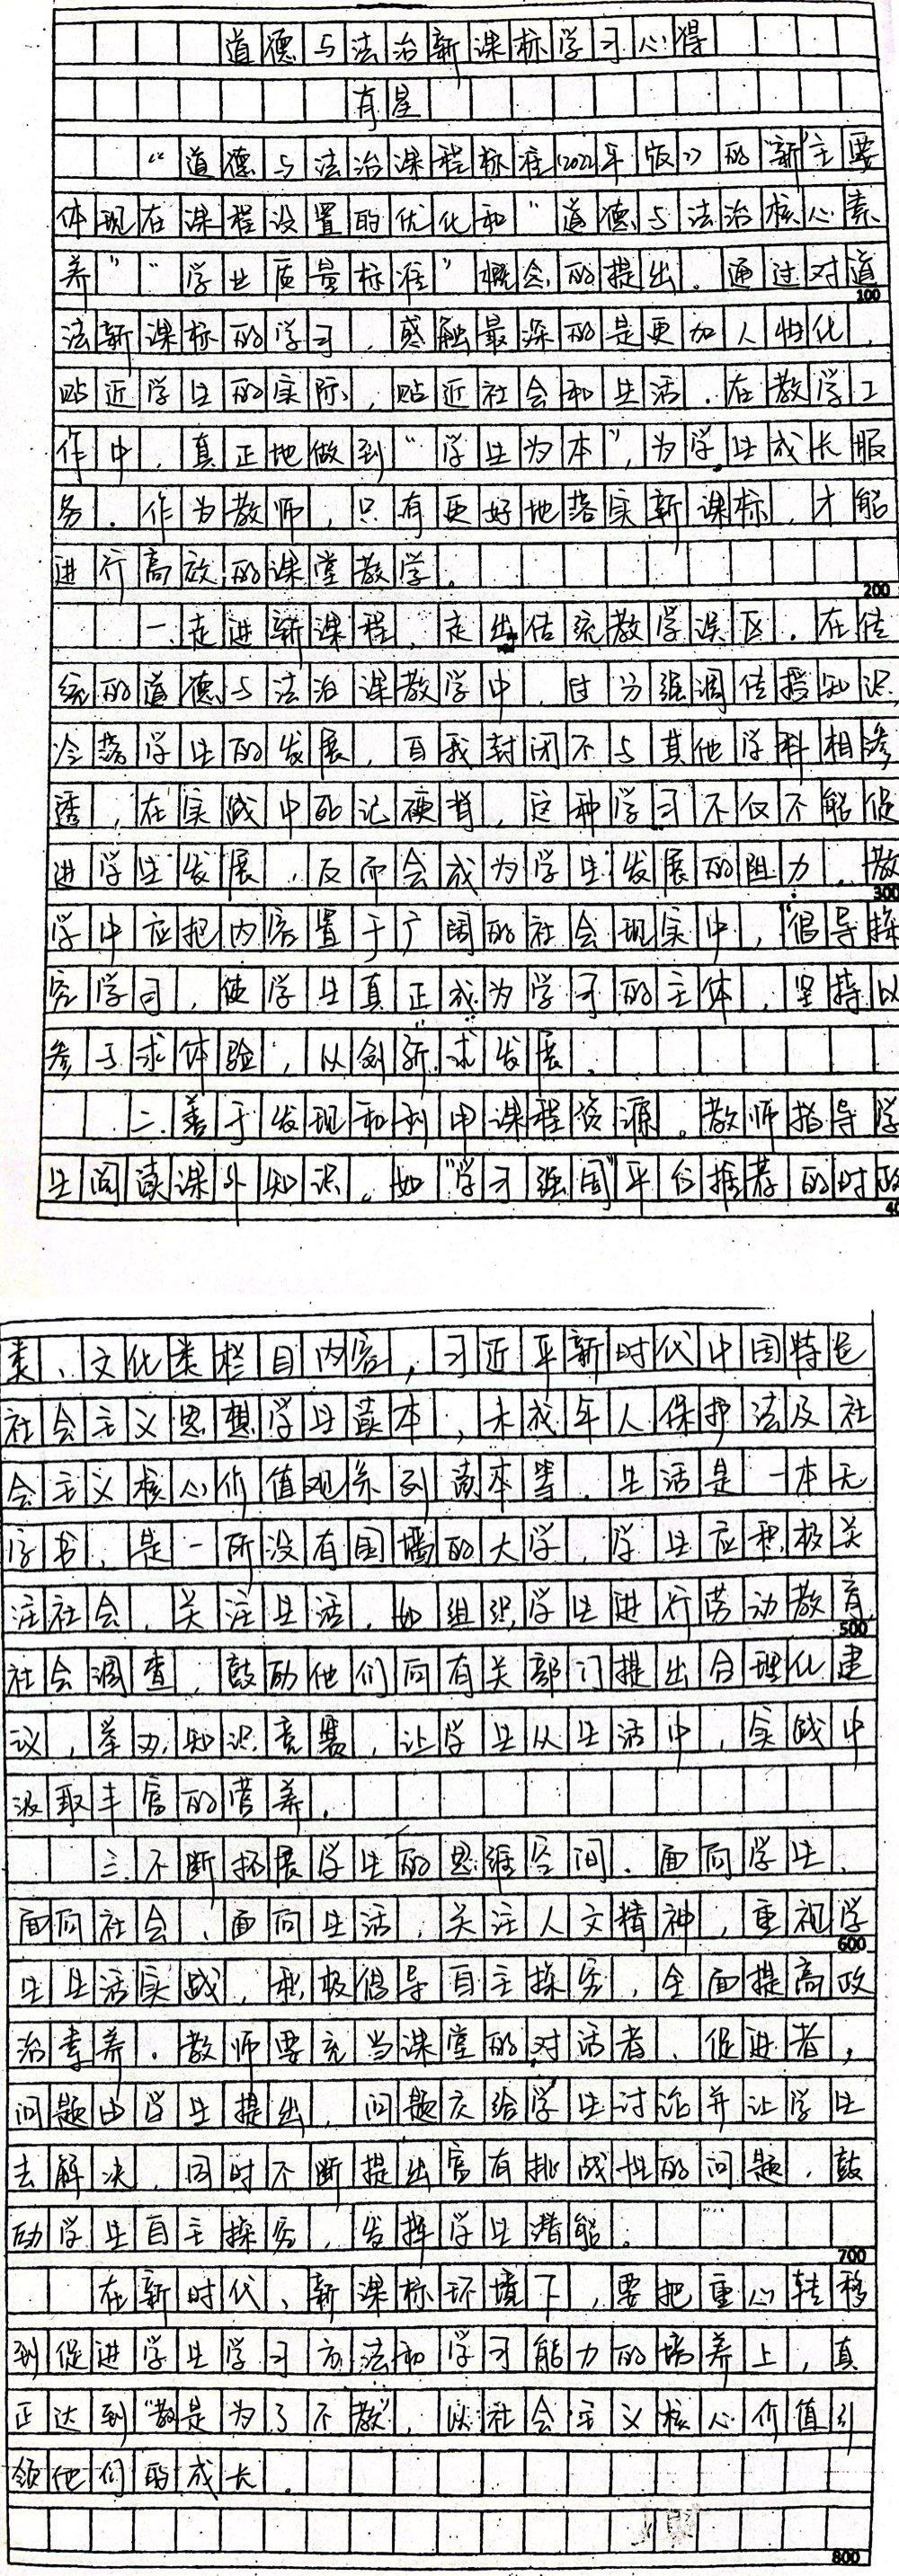 道德与法治新课标学习心得
有星
“道德与法治课程标准(2022年版)》的“新”主要
体现在课程设置的优化和“道德与法治核心素
养”“学业质量标准”概念的提出。通过对道
100
法新课标的学习,感触最深的是更加人性化,
贴近学生的实际,贴近社会和生活.在教学工
作中,真正地做到“学生为本”,为学生成长服
务.作为教师,只有更好地落实新课标,才能
进行高效的课堂教学。
200
一.走进新课程,走出传统教学误区.在传
统的道德与法治课教学中,过分强调传授知识,
冷落学生的发展,自我封闭不与其他学科相渗
透,在实践中死记硬背,这种学习不仅不能促
进学生发展,反而会成为学生发展的阻力.教
300
学中应把内容置于广阔的社会现实中,倡导探
究学习,使学生真正成为学习的主体,坚持以
参与求体验,以创新求发展.
二.善于发现和利用课程资源。教师指导学
生阅读课外知识.如“学习强国”平台推荐的时政
40
类、文化类栏目内容,习近平新时代中国特色
社会主义思想学生读本,未成年人保护法及社
会主义核心价值观系列读本等.生活是一本无
字书,是一所没有围墙的大学,学生应积极关
注社会,关注生活.如组织学生进行劳动教育
500
社会调查,鼓励他们向有关部门提出合理化建
议,举办知识竞赛,让学生从生活中,实践中
汲取丰富的营养.
三.不断拓展学生的思维空间.面向学生、
面向社会、面向生活,关注人文精神,重视学
600
生生活实践,积极倡导自主探究,全面提高政
治素养.教师要充当课堂的对话者、促进者,
问题由学生提出,问题交给学生讨论并让学生
去解决,同时不断提出富有挑战性的问题,鼓
励学生自主探究,发挥学生潜能.
700
在新时代、新课标环境下,要把重心转移
到促进学生学习方法和学习能力的培养上,真
正达到“教是为了不教”,以社会主义核心价值引
领他们的成长.
800